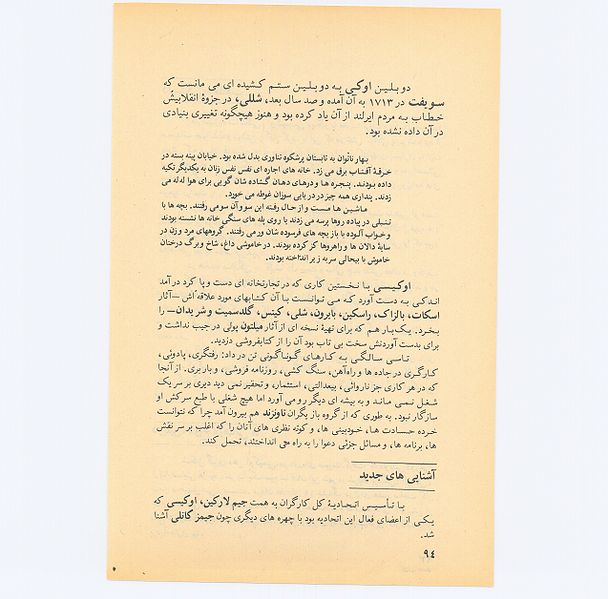 دوبلین اوکی به دوبلین ستم کشیده ای می مانست که
سویفت در ۱۷۱۳ به آن آمده و صد سال بعد، شللی، در جزوهٔ انقلابیش
خطاب به مردم ایرلند از آن یاد کرده بود و هنوز هیچگونه تغییری بنیادی
در آن داده نشده بود.
بهار ناتوان به تابستان پرشکوه تناوری بدل شده بود. خیابان پینه بسته در
خرقهٔ آفتاب برق می زد. خانه های اجاره ای نفس نفس زنان به یکدیگر تکیه
داده بودند. پنجره ها و درهای دهان گشاده شان گویی برای هوا له له می
زدند. پنداری همه چیز در دریایی سوزان غوطه می خورد.
ماشین ها مست و از حال رفته این سو و آن سو می رفتند. بچه ها با
تنبلی در پیاده روها پرسه می زدند یا روی پله های سنگی خانه ها نشسته بودند
و خواب آلوده با بازیچه های فرسوده شان ور می رفتند. گروههای مرد و زن در
سایهٔ دالان ها و راهروها کز کرده بودند. در خاموشی داغ، شاخ و برگ درختان
خاموش با بیحالی سر به زیر انداخته بودند.
اوکیسی با نخستین کاری که در تجارتخانه ای دست و پا کرد درآمد
اندکی به دست آورد که می توانست با آن کتابهای مورد علاقه اش —آثار
اسکات، بالزاک، راسکین، بایرون، شلی، کیتس، گلدسمیت و شریدان— را
بخرد. یک بار هم که برای تهیهٔ نسخه ای از آثار میلتون پولی در جیب نداشت و
برای بدست آوردنش سخت بی تاب بود آن را از کتابفروشی دزدید.
تا سی سالگی به کارهای گوناگونی تن در داد: رفتگری، پادوئی،
کارگری در جاده ها و راه آهن، سنگ کشی، روزنامه فروشی، و باربری. از آنجا
که در هر کاری جز ناروائی، بیعدالتی، استثمار، و تحقیر نمی دید دیری بر سر یک
شغل نمی ماند و به پیشه ای دیگر رو می آورد اما هیچ شغلی با طبع سرکش او
سازگار نبود. به طوری که از گروه بازیگران تاونزند هم بیرون آمد چرا که نتوانست
خرده حسادت ها، خودبینی ها، و کوته نظری های آنان را که اغلب بر سر نقش
ها، برنامه ها، و مسائل جزئی دعوا را به راه می انداختند، تحمل کند.
آشنایی های جدید
با تأسیس اتحادیهٔ کل کارگران به همت جیم لارکین، اوکیسی که
یکی از اعضای فعال این اتحادیه بود با چهره های دیگری چون جیمز کانلی آشنا
شد.
۹٤